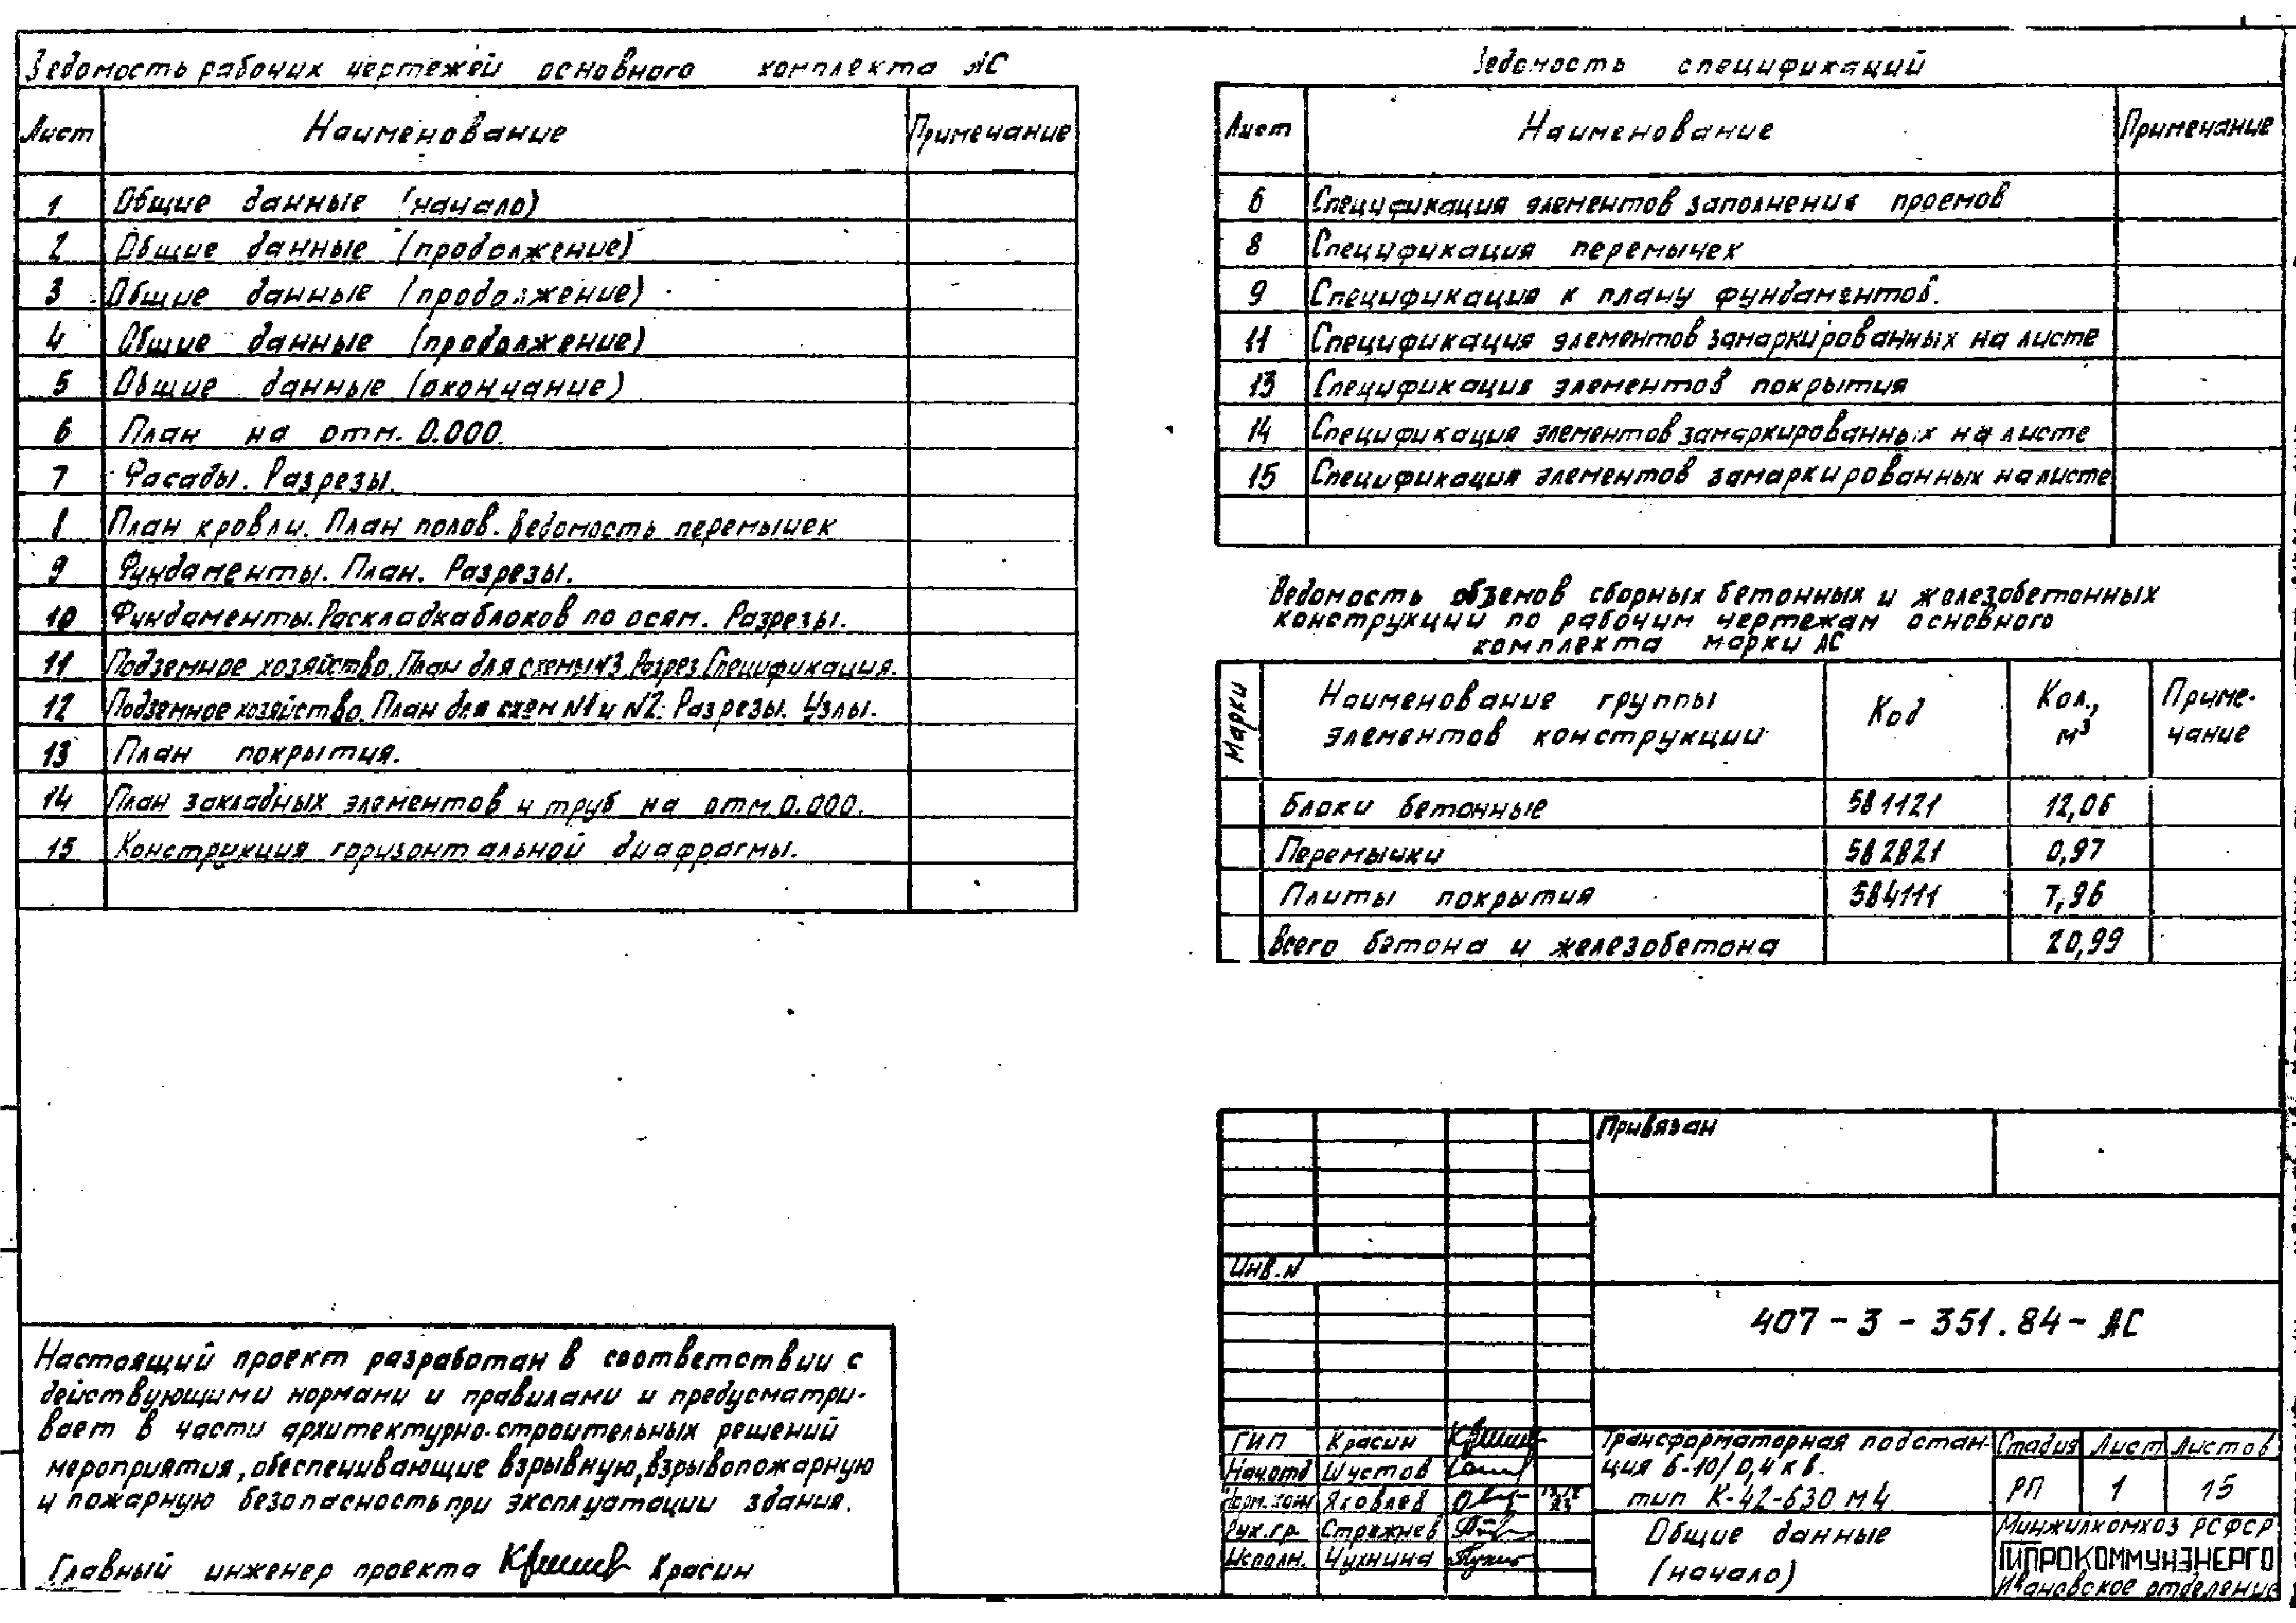 Ведомость рабочих чертежей основного комплекта АС
Лист Наименование Примечание
1 Общие данные (начало)
2 Общие данные (продолжение)
3 Общие данные (продолжение)
4 Общие данные (продолжение)
5 Общие данные (окончание)
6 План на отм. 0.000.
7 Фасады. Разрезы.
8 План кровли. План полов. Ведомость перемычек
9 Фундаменты. План. Разрезы.
10 Фундаменты. Раскладка блоков по осям. Разрезы.
11 Подземное хозяйство. План для схемы N3. Разрез. Спецификация.
12 Подземное хозяйство. План для схем N1 и N2. Разрезы. Узлы.
13 План покрытия.
14 План закладных элементов и труб на отм. 0.000.
15 Конструкция горизонтальной диафрагмы.
Ведомость спецификаций
Лист Наименование Примечание
6 Спецификация элементов заполнения проемов
8 Спецификация перемычек
9 Спецификация к плану фундаментов.
11 Спецификация элементов замаркированных на листе
13 Спецификация элементов покрытия
14 Спецификация элементов замаркированных на листе
15 Спецификация элементов замаркированных на листе
Ведомость объемов сборных бетонных и железобетонных
конструкций по рабочим чертежам основного
комплекта марки АС
Марки Наименование группы элементов конструкции Код Кол., м³ Примечание
Блоки бетонные 581121 12,06
Перемычки 582821 0,97
Плиты покрытия 584111 7,96
Всего бетона и железобетона 20,99
Настоящий проект разработан в соответствии с
действующими нормами и правилами и предусматри-
вает в части архитектурно-строительных решений
мероприятия, обеспечивающие взрывную, взрывопожарную
и пожарную безопасность при эксплуатации здания.
Главный инженер проекта Красин
Привязан
Инв. N
407-3-351.84-АС
ГИП Красин
Нач.отд Шустов
Норм.кон Яковлев
Рук.гр. Стрежнев
Исполн. Чухнина
Трансформаторная подстан-
ция 6-10/0,4 кв.
тип К-42-630 М4
Стадия Лист Листов
РП 1 15
Общие данные
(начало)
Минжилкомхоз РСФСР
ГИПРОКОММУНЭНЕРГО
Ивановское отделение